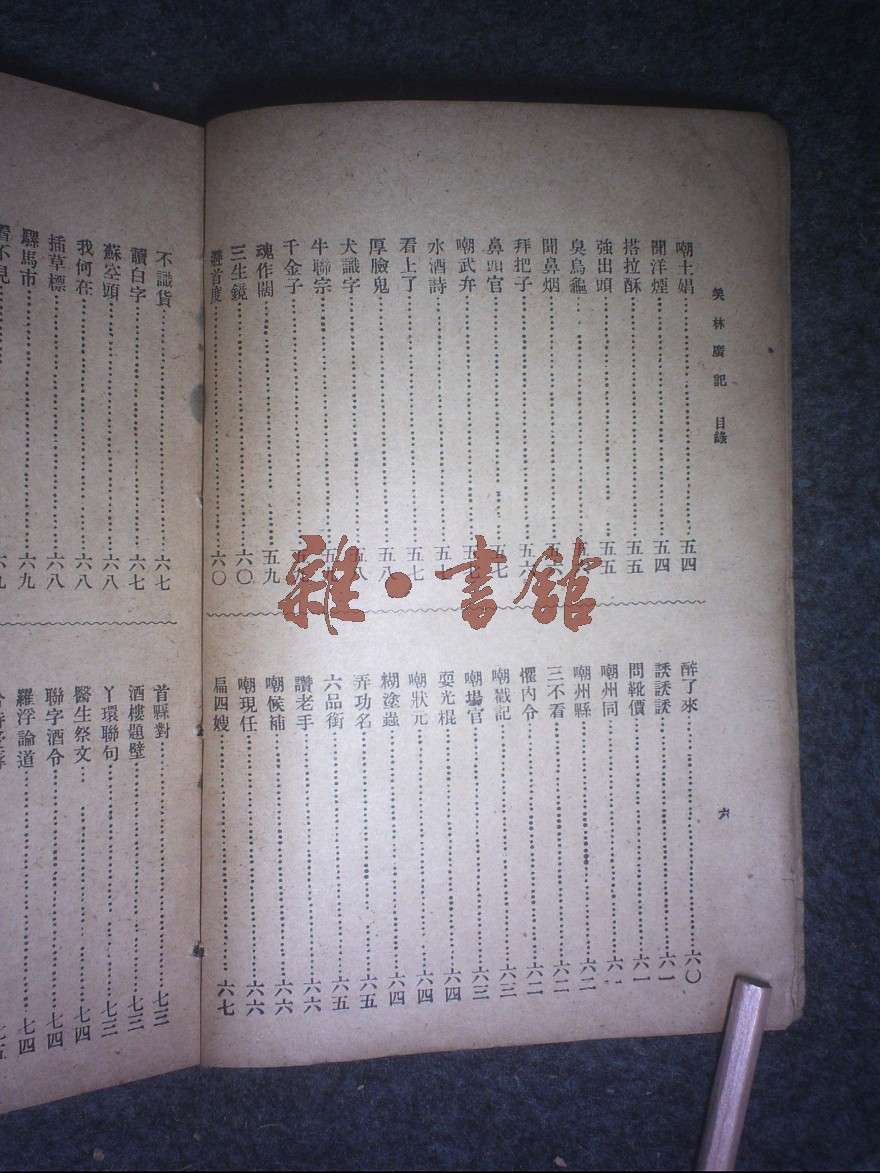 笑林廣記 目錄
六
嘲土娼……五四
聞洋煙……五四
搭拉酥……五五
強出頭……五五
臭烏龜
聞鼻烟
拜把子……五六
鼻
嘲武弁
水酒詩
看上了……五七
厚臉鬼……五八
犬識字……五八
牛聯宗
千金子
魂作鬧……五九
三生鏡……六〇
首度……六〇
醉了來……六〇
誘誘誘……六一
問靴價……六一
嘲州同……六一
嘲州縣……六二
三不看……六二
懼內令……六二
嘲戳記……六三
嘲場官……六三
耍光棍……六四
嘲狀元……六四
糊塗蟲……六四
弄功名……六五
六品銜……六五
讚老手……六六
嘲候補……六六
嘲現任……六六
扁四嫂……六七
不識貨……六七
讀白字……六七
蘇空頭……六八
我何在……六八
插草標……六八
騾馬市……六九
看不見……六九
首縣對……七三
酒樓題壁……七三
丫環聯句……七三
醫生祭文……七四
聯字酒令……七四
羅浮論道……七四
雜·書館